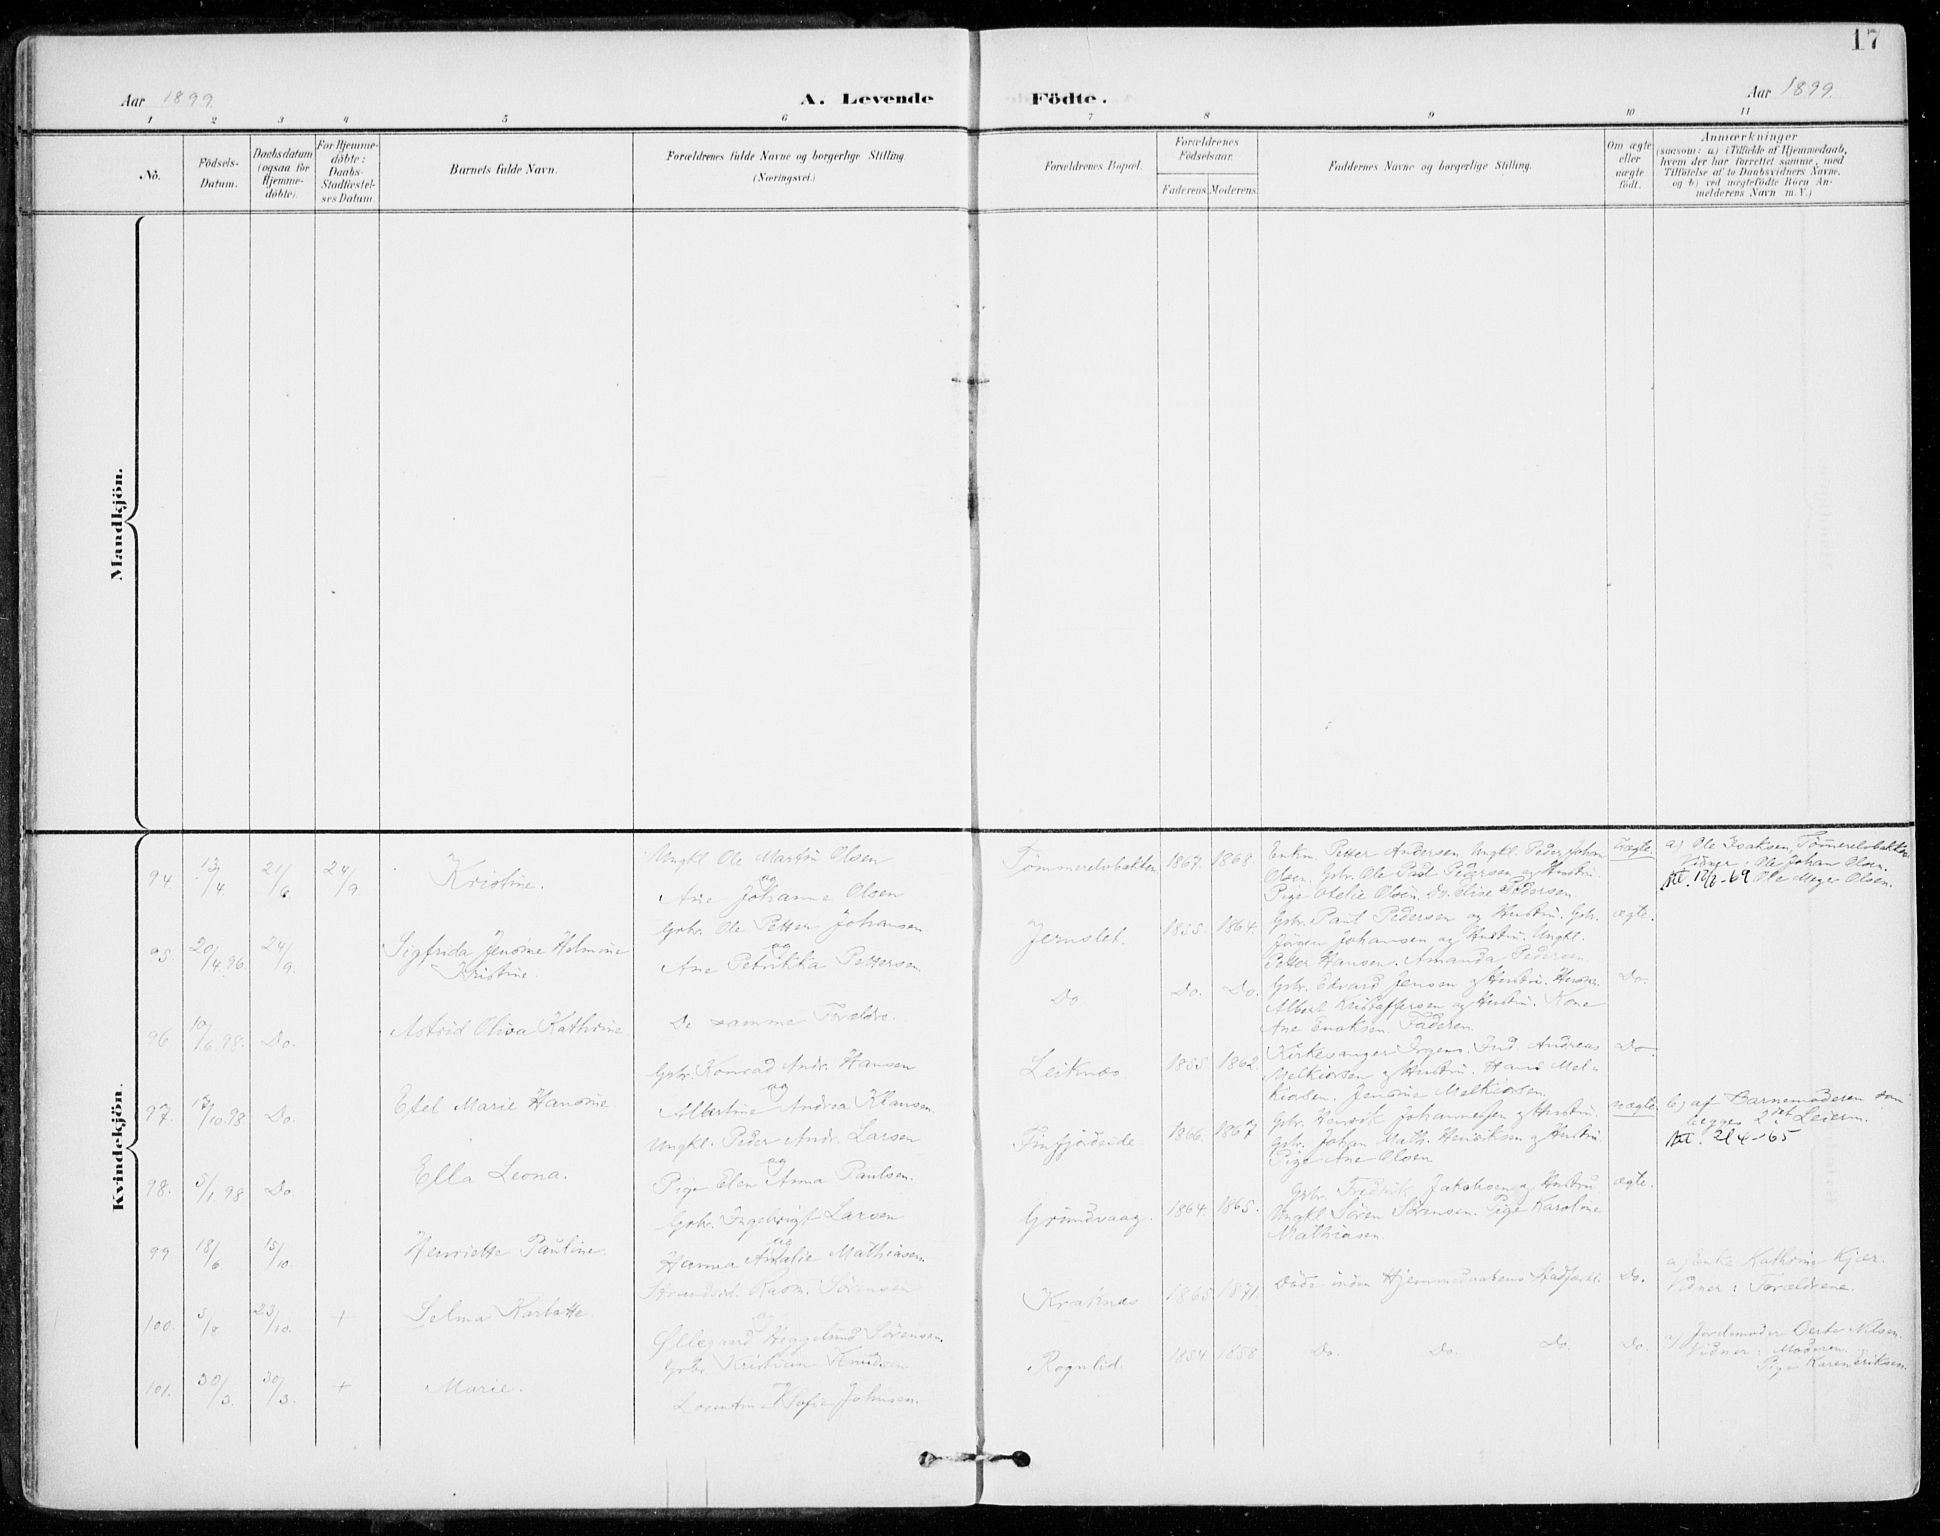 17
Aar 1899.
A. Levende Födte.
Aar 1899.
1 2 3 4 5 6 7 8 9 10 11
No.
Födsels-
Datum.
Daabsdatum
(ogsaa for
Hjemme-
döbte).
For Hjemme-
döbte:
Daabs-
Stadfæstel-
ses Datum.
Barnets fulde Navn.
Forældrenes fulde Navne og borgerlige Stilling.
(Næringsvei.)
Forældrenes Bopæl.
Forældrenes
Födselsaar.
Faderens. Moderens.
Faddernes Navne og borgerlige Stilling.
Om ægte
eller
uægte
födt.
Anmærkninger
(saasom: a) i Tilfælde af Hjemmedaab,
hvem der har forrettet samme, med
Tilföielse af to Daabsvidners Navne,
og b) ved uægtefödte Börn An-
melderens Navn m. V.)
Mandkjön.
Kvindekjön.
94. 13/4 21/6 24/9 Kristine.
Ungkl. Ole Martin Olsen
og
Ane Johanne Olsen
Tömmerelvbakken. 1867. 1868.
Enkm. Petter Andersen. Ungkl. Peder Johan
Olsen. Gbr. Ole Paul Pedersen og Hustru.
Pige Otelie Olsen. Do. Elise Pedersen.
uægte.
a) Ole Isaksen, Tömmerelvbakken
Vidner: Ole Johan Olsen.
Ole Meyer Olsen.
95. 20/4.96. 24/9. Sigfrida Jensine Helmine
Kristine.
Gbr. Ole Petter Johansen
og
Ane Petrikka Pettersen.
Jernslet. 1855. 1864.
Gbr. Paul Pedersen og Hustru. Gbr.
Jörgen Johansen og Hustru. Ungkl.
Petter Hansen. Amanda Pedersen.
ægte.
96 10/6.98. Do. Astrid Oliva Kathrine
De samme Forældre.
Do Do. Do.
Gbr. Edvard Jensen og Hustru.
Albert Kristoffersen og Hustru. Kone
Ane Enoksen. Faderen.
Do.
97. 17/10.98 Do. Etel Marie Hansine.
Gbr. Konrad Andr. Hansen
og
Albertine Andrea Klausen.
Leiknes 1855. 1862.
Kirkesanger Irgens. Ind. Andreas
Melkiorsen og Hustru. Hans Mel-
kiorsen. Jensine Melkiorsen.
Do
98. 5/1 98 Do. Ella Leona.
Ungkl. Peder Andr. Larsen
og
Pige Elen Anna Paulsen.
Finfjordeide 1866. 1867
Gbr. Henrik Johannesen og Hustru.
Gbr. Johan Math. Henriksen og Hustru.
Pige Ane Olsen
uægte.
b) af Barnemoderen som
begges 2det Leierm.
99 18/6 15/10. Henriette Pauline.
Gbr. Ingebrigt Larsen
og
Hanna Amalie Mathiasen.
Grundvaag. 1864. 1865.
Gbr. Fredrik Jakobsen og Hustru
Ungkl. Sören Sörensen. Pige Karoline
Mathiasen.
ægte.
100. 5/8 23/10. + Selma Karlotte.
Strandsid. Rasm. Sörensen
og
Ollegaard Heggelund Sörensen.
Kraknes 1865 1871.
Döde inden Hjemmedaabens Stadfæst.
Do.
a) Enke Kathrine Kjær.
Vidner: Forældrene.
101. 30/3. 30/3. + Marie.
Gbr. Kristian Knudsen
og
Lorentine Sofie Johnsen.
Rognlid. 1854 1858
Do. Do. Do. Do.
a) Jordemoder Berte Nilsen.
Vidner: Moderen.
Pige Karen Eriksen.